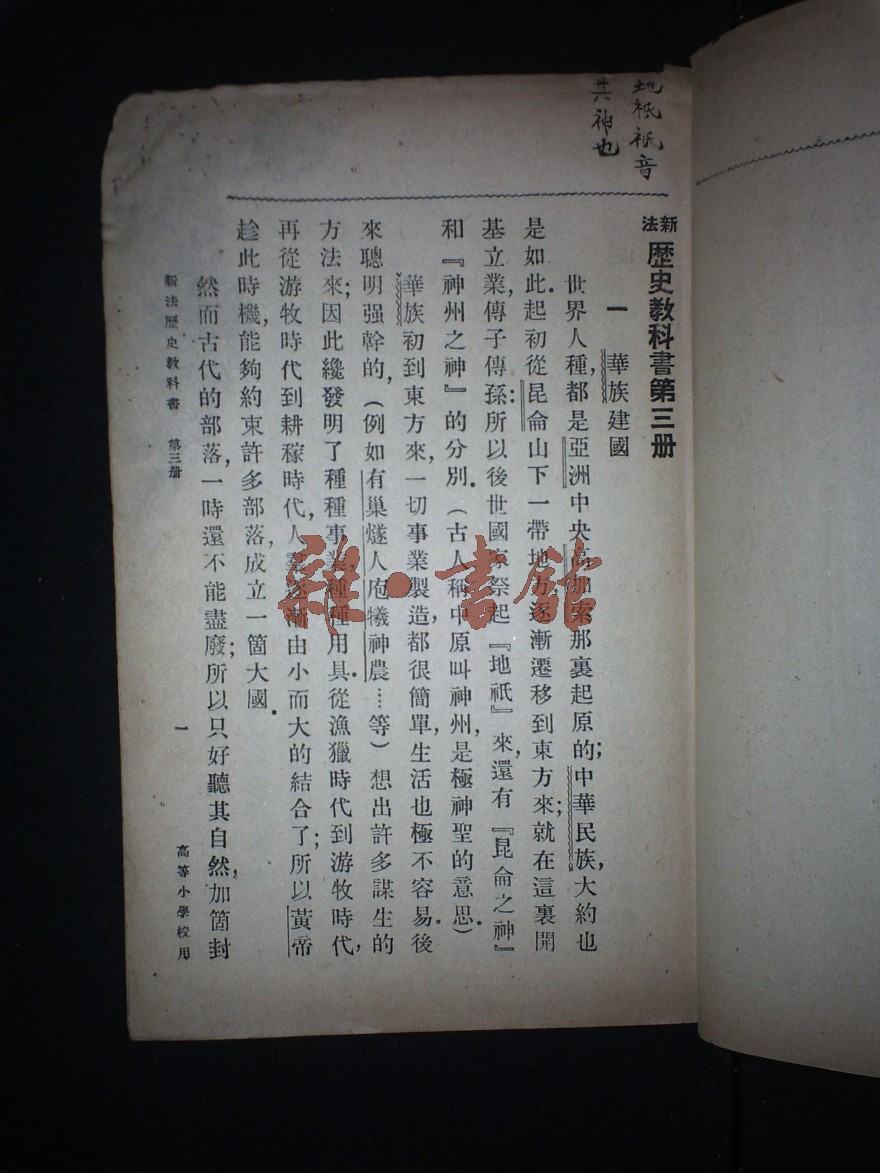 地祇祇音
其神也
新法歷史教科書第三册
一　華族建國
世界人種,都是亞洲中央高那索那裏起原的;中華民族,大約也
是如此.起初從昆侖山下一帶地方,逐漸遷移到東方來;就在這裏開
基立業,傳子傳孫:所以後世國家祭起『地祇』來,還有『昆侖之神』
和『神州之神』的分別.(古人稱中原叫神州,是極神聖的意思.)
華族初到東方來,一切事業製造,都很簡單,生活也極不容易.後
來聰明强幹的,(例如有巢燧人庖犧神農……等)想出許多謀生的
方法來;因此纔發明了種種事業,種種用具.從漁獵時代到游牧時代,
再從游牧時代到耕稼時代,人羣逐漸由小而大的結合了;所以黃帝
趁此時機,能夠約束許多部落,成立一箇大國.
然而古代的部落,一時還不能盡廢;所以只好聽其自然,加箇封
新法歷史教科書　第三册　一　高等小學校用
雜·書館